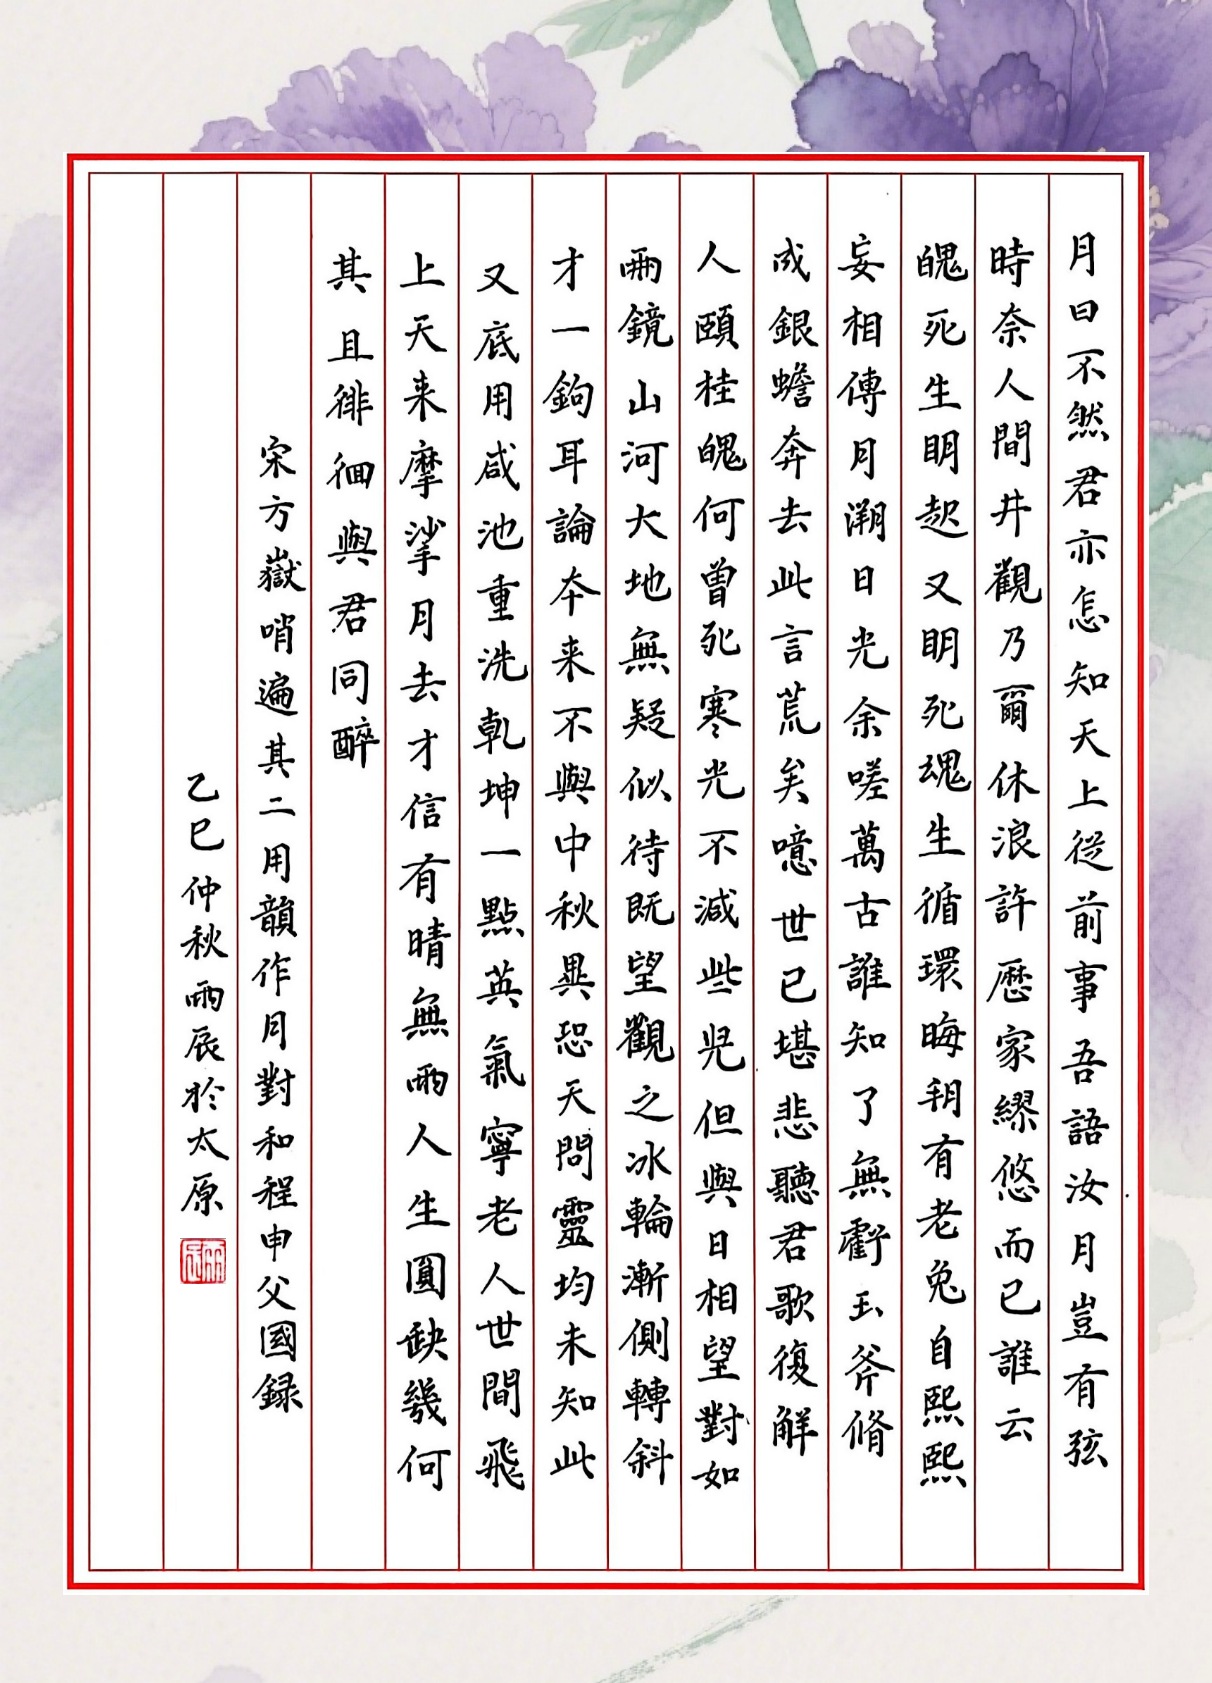 月曰不然君亦怎知天上從前事吾語汝月豈有弦
時奈人間井觀乃爾休浪許曆家繆悠而已誰云
魄死生明起又明死魂生循環晦朔有老兔自熙熙
妄相傳月溯日光余嗟萬古誰知了無虧玉斧脩
成銀蟾奔去此言荒矣噫世已堪悲聽君歌復解
人頤桂魄何曾死寒光不減些兒但與日相望對如
兩鏡山河大地無疑似待既望觀之冰輪漸側轉斜
才一鉤耳論本来不與中秋異恐天問靈均未知此
又底用咸池重洗乾坤一點英氣寧老人世間飛
上天来摩挲月去才信有晴無雨人生圓缺幾何
其且徘徊與君同醉
宋方嶽哨遍其二用韻作月對和程申父國録
乙巳仲秋雨辰於太原
雨辰